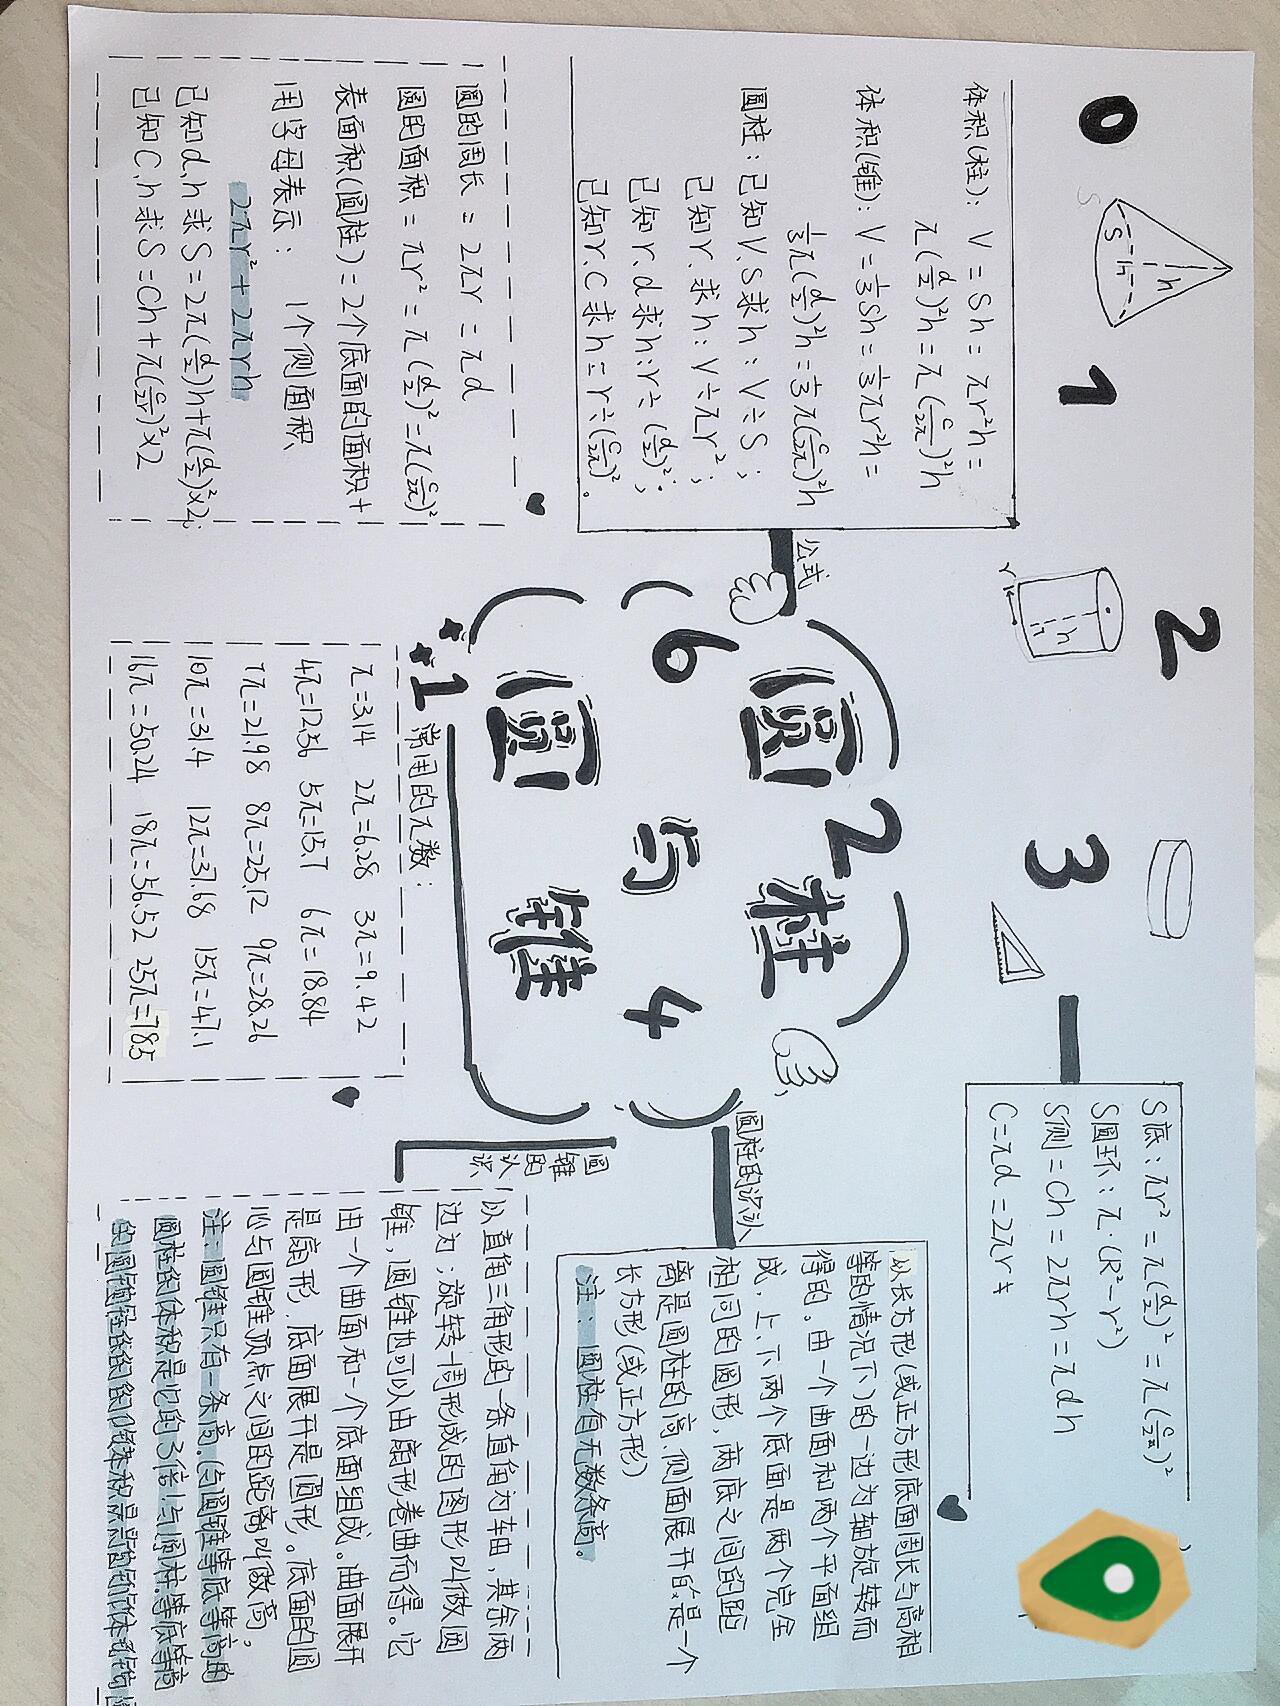 0
1
2
3
体积(柱): V=Sh=πr²h=
π(d/2)²h=π(c/2π)²h
体积(锥): V=1/3Sh=1/3πr²h=
1/3π(d/2)²h=1/3π(c/2π)²h
圆柱:已知V、S求h:V÷S;
已知V、r求h:V÷πr²;
公式
圆的周长=2πr=πd
圆的面积=πr²=π(d/2)²=π(c/2π)²
表面积(圆柱)=2个底面的面积+
1个侧面积
用字母表示:
2πr²+2πrh
S
h
r
h
6
圆柱
2
与
圆锥
4
1
常用的π数:
π=3.14 2π=6.28 3π=9.42
4π=12.56 5π=15.7 6π=18.84
7π=21.98 8π=25.12 9π=28.26
10π=31.4 12π=37.68 15π=47.1
16π=50.24 18π=56.52 25π=78.5
S底:πr²=π(d/2)²=π(c/2π)²
S圆环:π·(R²-r²)
S侧=Ch=2πrh=πdh
C=πd=2πr
圆柱的认识
以长方形(或正方形底面周长与高相
等的情况下)的一边为轴旋转而
得的。由一个曲面和两个平面组
成,上、下两个底面是两个完全
相同的圆形,两底之间的距
离是圆柱的高,侧面展开是一个
长方形(或正方形)
注:圆柱有无数条高。
圆锥的认识
以直角三角形的一条直角为轴,其余两
边为;旋转一周形成的图形叫做圆
锥,圆锥也可以由扇形卷曲而得。它
由一个曲面和一个底面组成。曲面展开
是扇形,底面展开是圆形。底面的圆
心与圆锥顶点之间的距离叫做高,
注:圆锥只有一条高。(与圆锥等底等高的
圆柱的体积是它的3倍)与圆柱等底等高